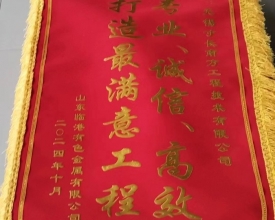 方工程技术有限公司
专业、诚信、高效
打造最满意工程
山东临港有色金属有限公司
二〇二四年十月